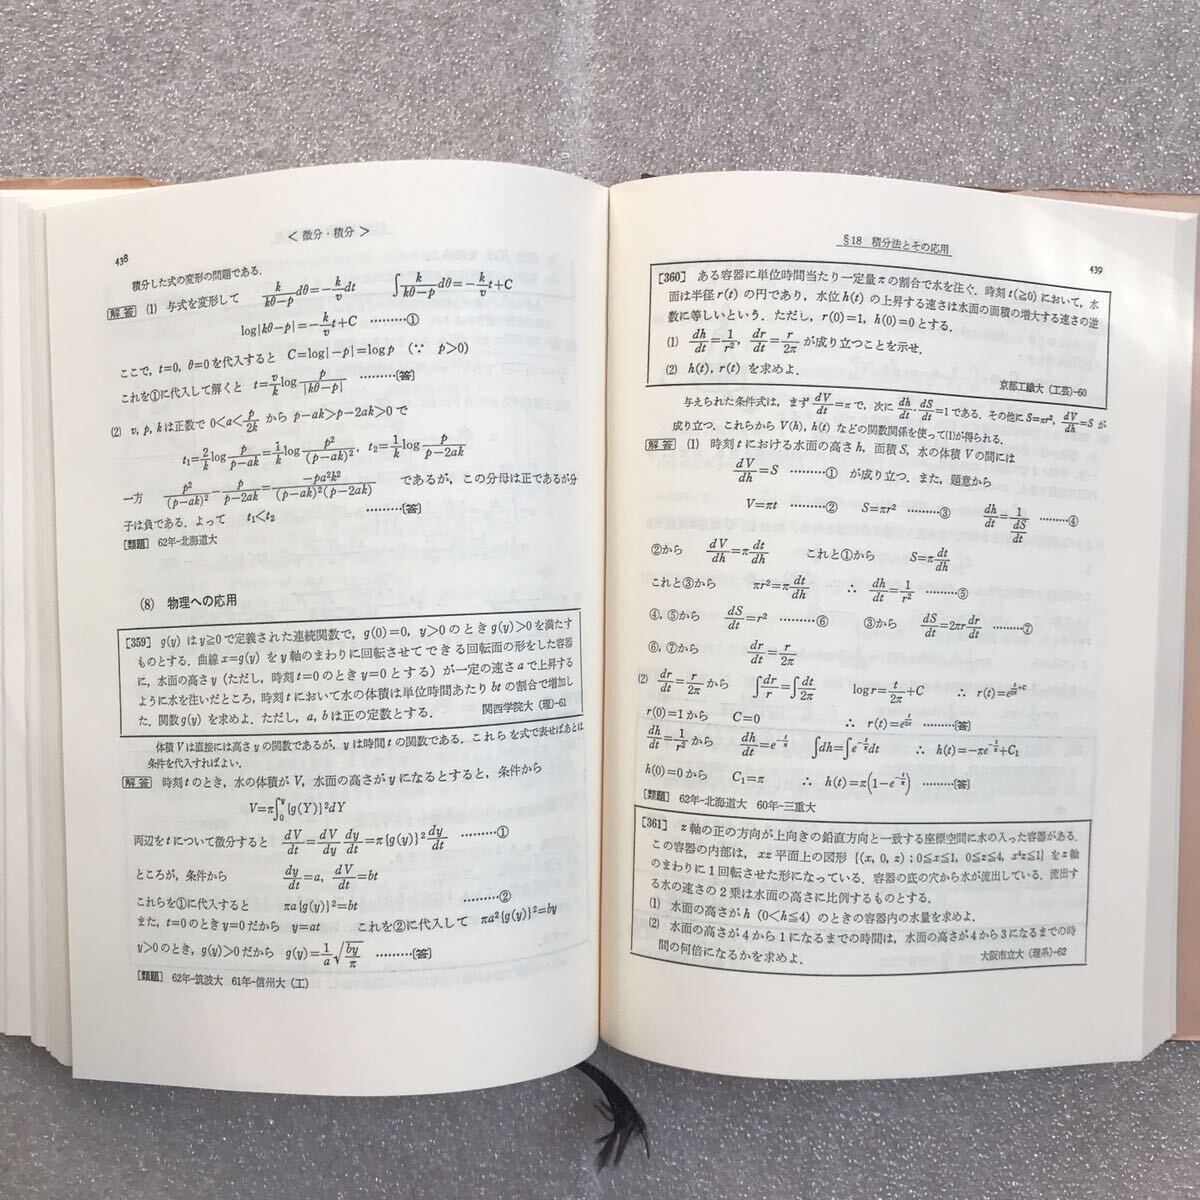 438
＜微分・積分＞
積分した式の変形の問題である．
解答 (1) 与式を変形して k/(kθ−p) dθ=−(k/v)dt ∫k/(kθ−p) dθ=−(k/v)t+C
log|kθ−p|=−(k/v)t+C ………①
ここで，t=0，θ=0を代入すると C=log|−p|=log p (∵ p>0)
これを①に代入して解くと t=(v/k)log p/|kθ−p| ………〔答〕
(2) v, p, kは正数で 0<a<p/2k から p−ak>p−2ak>0で
t₁=(2/k)log p/(p−ak)=(1/k)log p²/(p−ak)², t₂=(1/k)log p/(p−2ak)
一方 p²/(p−ak)²−p/(p−2ak)=−pa²k²/((p−ak)²(p−2ak)) であるが，この分母は正であるが分
子は負である．よって t₁<t₂ ………〔答〕
［類題］ 62年-北海道大
(8) 物理への応用
［359］ g(y) は y≧0 で定義された連続関数で，g(0)=0，y>0 のとき g(y)>0 を満たす
ものとする．曲線 x=g(y) を y 軸のまわりに回転させてできる回転面の形をした容器
に，水面の高さ y（ただし，時刻 t=0 のとき y=0 とする）が一定の速さ a で上昇する
ように水を注いだところ，時刻 t において水の体積は単位時間あたり bt の割合で増加し
た．関数 g(y) を求めよ．ただし，a, b は正の定数とする． 関西学院大（理）-61
体積 V は直接には高さ y の関数であるが，y は時間 t の関数である．これらを式で表せばあとは
条件を代入すればよい．
解答 時刻 t のとき，水の体積が V，水面の高さが y になるとすると，条件から
V=π∫₀^y {g(Y)}²dY
両辺を t について微分すると dV/dt=dV/dy dy/dt=π{g(y)}² dy/dt ………①
ところが，条件から dy/dt=a, dV/dt=bt
これらを①に代入すると πa{g(y)}²=bt ………②
また，t=0 のとき y=0 だから y=at これを②に代入して πa²{g(y)}²=by
y>0 のとき，g(y)>0 だから g(y)=(1/a)√(by/π) ………〔答〕
［類題］ 62年-筑波大 61年-信州大（工）
§18 積分法とその応用
439
［360］ ある容器に単位時間当たり一定量 π の割合で水を注ぐ．時刻 t(≧0) において，水
面は半径 r(t) の円であり，水位 h(t) の上昇する速さは水面の面積の増大する速さの逆
数に等しいという．ただし，r(0)=1，h(0)=0 とする．
(1) dh/dt=1/r², dr/dt=r/2π が成り立つことを示せ．
(2) h(t), r(t) を求めよ． 京都工繊大（工芸）-60
与えられた条件式は，まず dV/dt=π で，次に dh/dt・dS/dt=1 である．その他に S=πr², dV/dh=S が
成り立つ．これらから V(h), h(t) などの関数関係を使って(1)が得られる．
解答 (1) 時刻 t における水面の高さ h，面積 S，水の体積 V の間には
dV/dh=S ………① が成り立つ．また，題意から
V=πt ………② S=πr² ………③ dh/dt=1/(dS/dt) ………④
②から dV/dh=π dt/dh これと①から S=π dt/dh
これと③から πr²=π dt/dh ∴ dh/dt=1/r² ………⑤
④，⑤から dS/dt=r² ………⑥ ③から dS/dt=2πr dr/dt ………⑦
⑥，⑦から dr/dt=r/2π
(2) dr/dt=r/2π から ∫dr/r=∫dt/2π log r=t/2π+C ∴ r(t)=e^(t/2π+c)
r(0)=1 から C=0 ∴ r(t)=e^(t/2π) ………〔答〕
dh/dt=1/r² から dh/dt=e^(−t/π) ∫dh=∫e^(−t/π)dt ∴ h(t)=−πe^(−t/π)+C₁
h(0)=0 から C₁=π ∴ h(t)=π(1−e^(−t/π)) ………〔答〕
［類題］ 62年-北海道大 60年-三重大
［361］ z 軸の正の方向が上向きの鉛直方向と一致する座標空間に水の入った容器がある．
この容器の内部は，xz 平面上の図形 {(x, 0, z)；0≦x≦1, 0≦z≦4, x⁴z≦1} を z 軸
のまわりに 1 回転させた形になっている．容器の底の穴から水が流出している．流出す
る水の速さの 2 乗は水面の高さに比例するものとする．
(1) 水面の高さが h (0<h≦4) のときの容器内の水量を求めよ．
(2) 水面の高さが 4 から 1 になるまでの時間は，水面の高さが 4 から 3 になるまでの時
間の何倍になるかを求めよ． 大阪市立大（理系）-62